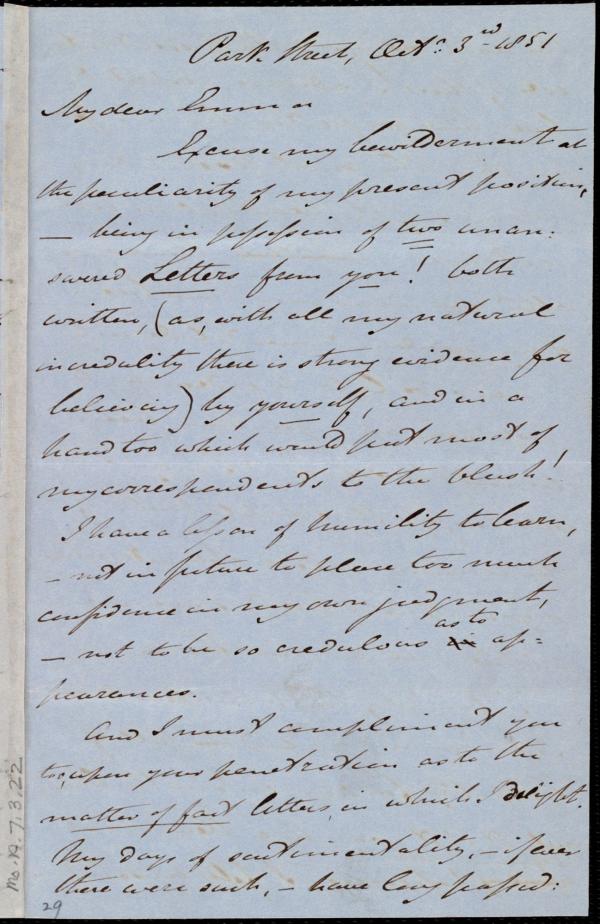 Park Street, Octr. 3rd 1851
My dear Emma
Excuse my bewilderment at
the peculiarity of my present position,
— being in possession of two unan-
swered Letters from you! both
written, (as, with all my natural
incredulity there is strong evidence for
believing) by yourself, and in a
hand too which would put most of
my correspondents to the blush!
I have a lesson of humility to learn,
— not in future to place too much
confidence in my own judgment,
— not to be so credulous as to ap-
pearances.
And I must compliment you
too, upon your penetration as to the
matter of fact letters in which I delight.
My days of sentimentality, — if ever
there were such, — have long passed:
Ms. A. 7. 3. 22
29